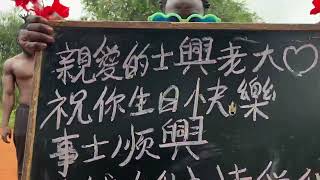 親愛的士興老大♡
祝你生日快樂
事士順興